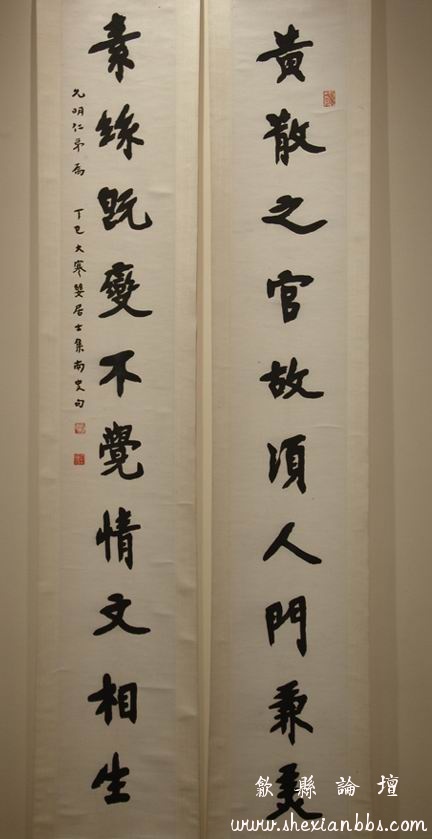 黃散之官故須人門兼美
素絲既變不覺情文相生
允明仁弟屬
丁巳大寒嬰居士集南史句
歙縣論壇
www.shexianbbs.com